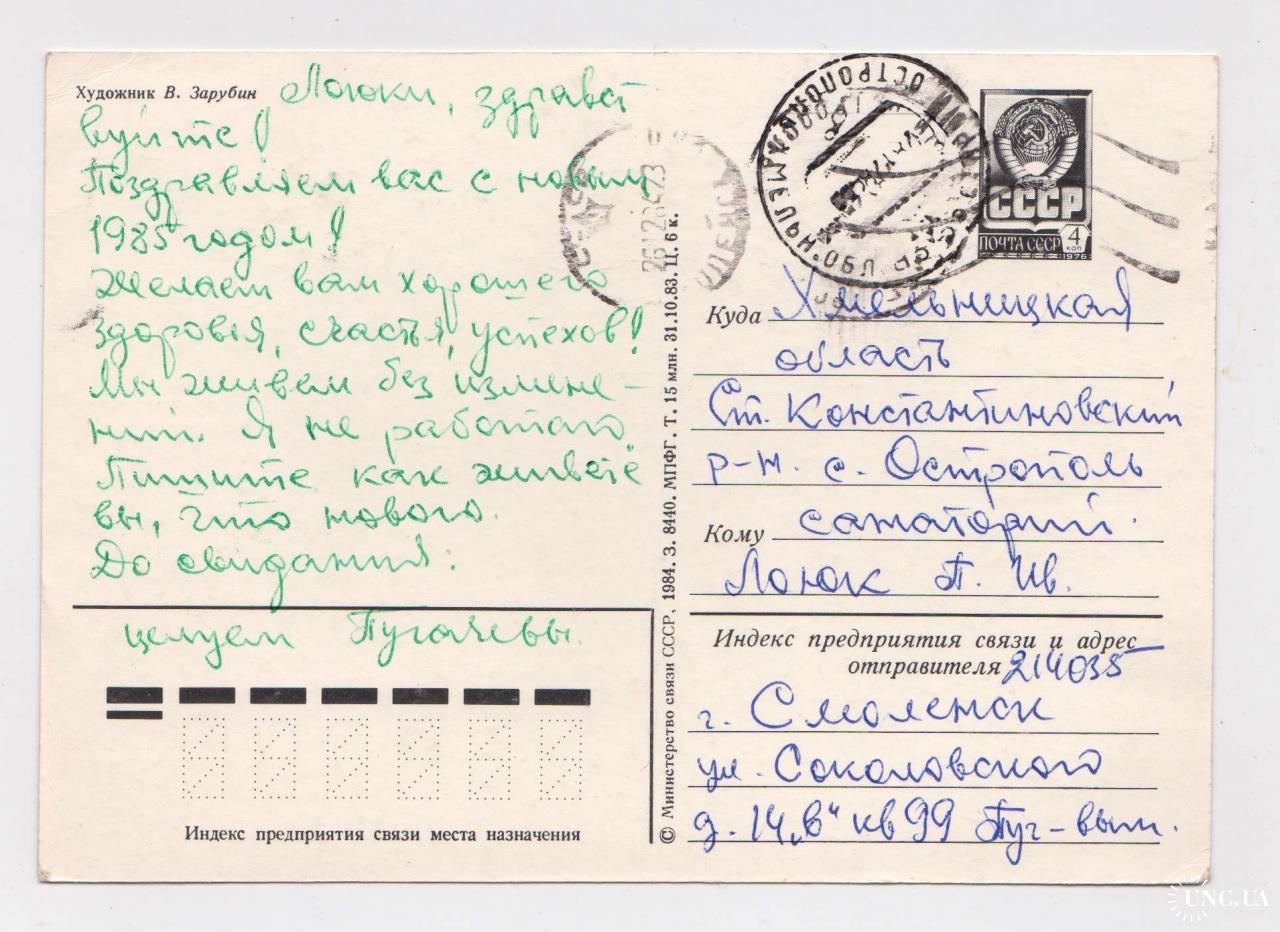 Художник В. Зарубин
Лоюки, здравст
вуйте!
Поздравляем вас с новым
1985 годом!
Желаем вам хорошего
здоровья, счастья, успехов!
Мы живем без измене-
ний. Я не работаю.
Пишите как живете
вы, что нового.
До свидания.
целуем Пугачевы.
Индекс предприятия связи места назначения
© Министерство связи СССР, 1984. З. 8440. МПФГ. Т. 15 млн. 31.10.83. Ц. 6 к.
СССР
ПОЧТА СССР 4 КОП
1976
Куда Хмельницкая
область
Ст. Константиновский
р-н. с. Острополь
санаторий.
Кому
Лоюк П. Ив.
Индекс предприятия связи и адрес
отправителя 214035
г. Смоленск
ул. Соколовского
д. 14 „в“ кв 99 Пуг-вым.
UNC.UA